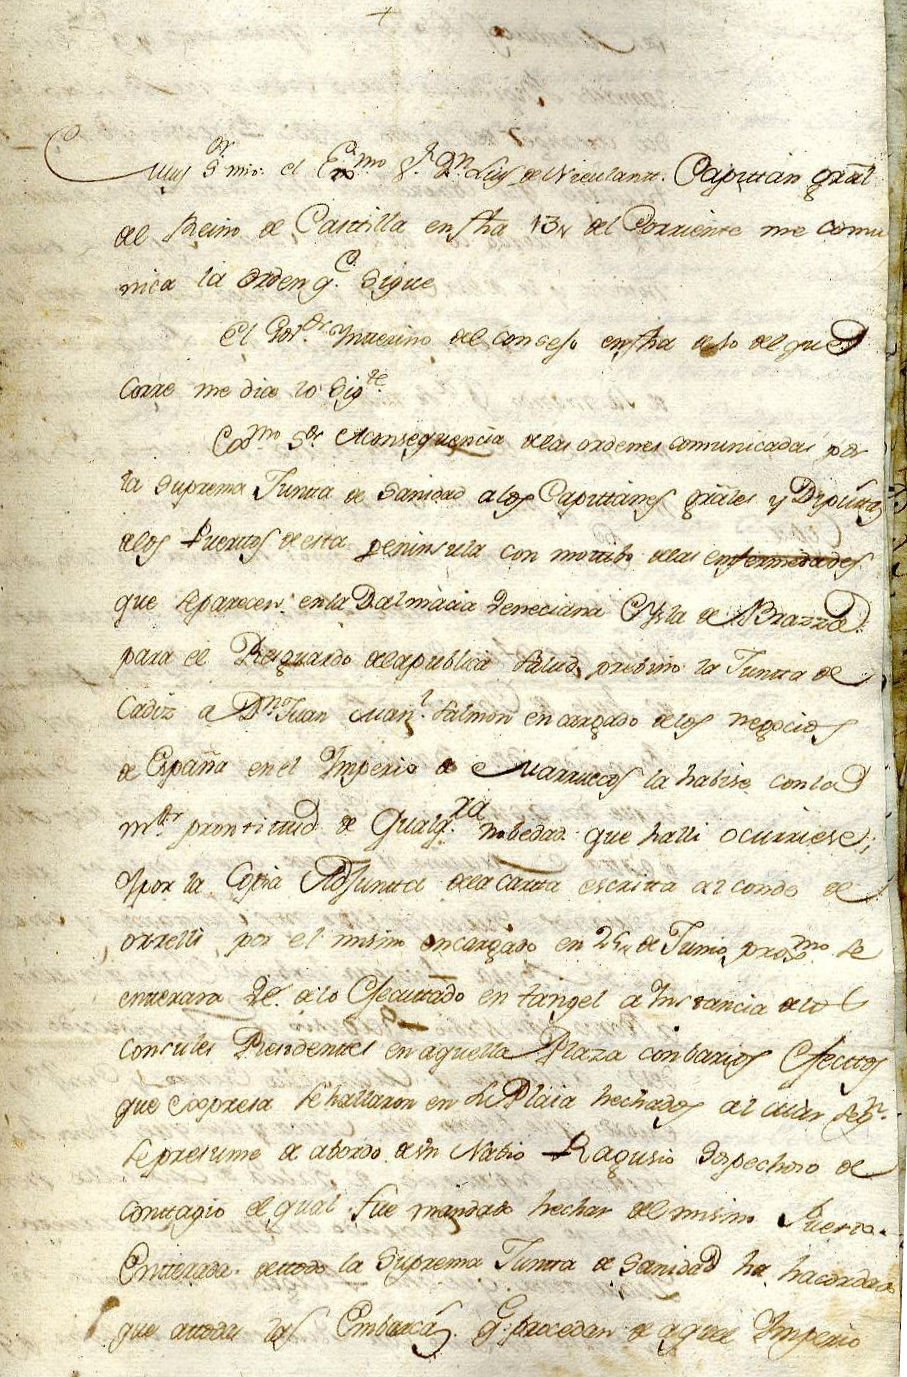 Muy Sor mio: el Exmo Sr Dn Luis de Urculanr. Capittan gral
del Reino de Casttilla en fha 13, del Corriente me comu
nica la orden q.e Sigue
El Gor.or Ynterino del consejo en fha de 10 del que
corre me dice lo Sigte
Exmo Sor Aconsequencia delas ordenes comunicadas por
la Suprema Juntta de Sanidad alos Capittanes grales y Diputtas
delos Puertos de esta peninsula con mottibo delas enfermedades
que separecen en la Dalmacia Veneciana E Ysla de Brazza
para el Resguardo dela publica Salud, prebino la Juntta de
Cadiz a Dn Juan Manl Salmon encargado delos negocios
de España en el Ymperio de Marruecos la habise con la
mor pronttitud de Qualqra nobedad que halli ocurriese;
y por la Copia Adjuntta dela cartta escritta al conde de
orrelli por el mismo encargado en 25, de Junio proxmo se
entterara Ve. delo Ejecuttado en tangel a Ynstancia delos
consules Residenttes en aquella Plaza con barios Efecttos
que Expresa se hallaron en su Plaia hechados al mar segn.
se presume de abordo de un Nabio Ragusio Sospechoso de
conttagio el qual fue mandado hechar del mismo Puerto.
Entterada de ttodo la Suprema Juntta de Sanidad ha hacordado
que attodas las Embarcas. q. procedan de aquel Ymperio